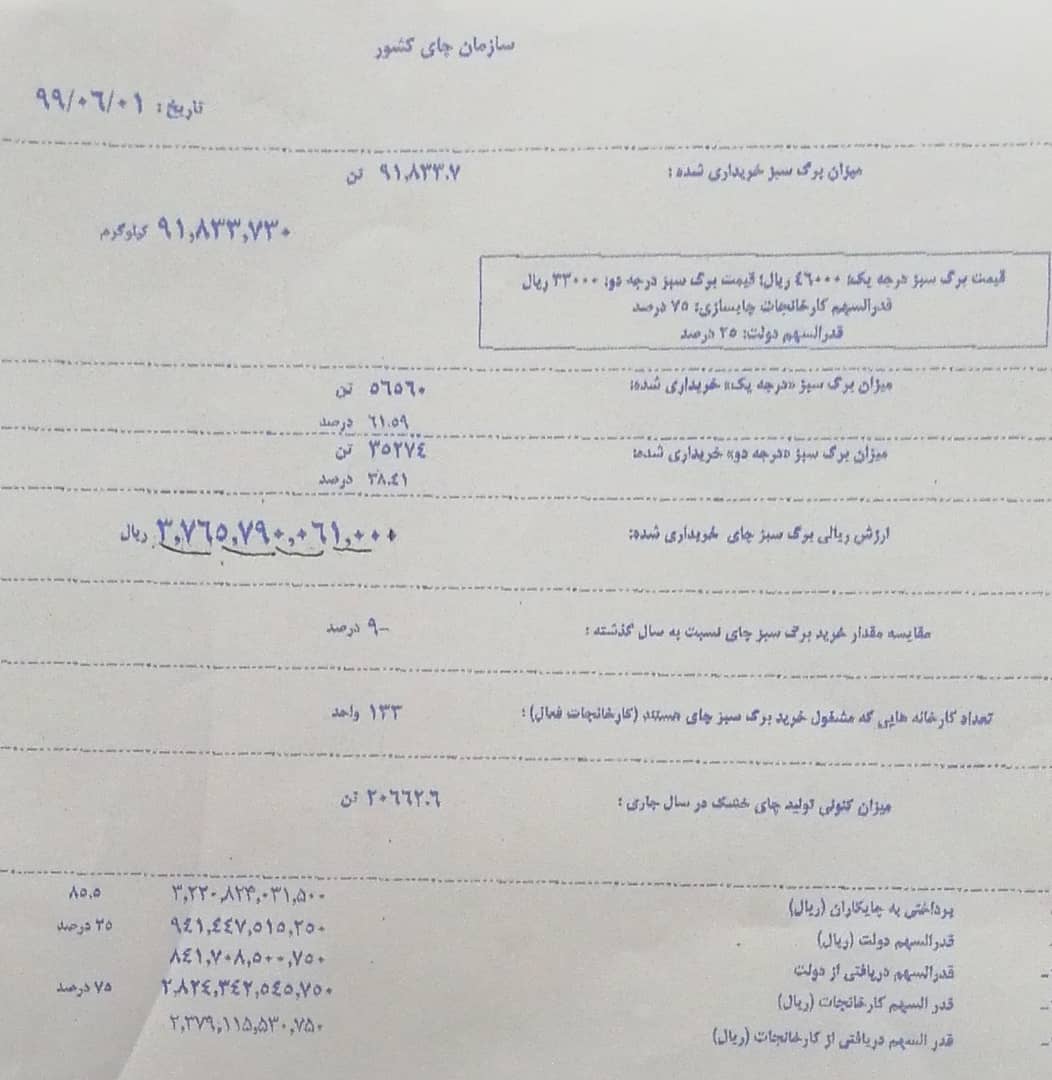 سازمان چای کشور
تاریخ: ۹۹/۰۶/۰۱
میزان برگ سبز خریداری شده: ۹۱,۸۳۳.۷ تن
۹۱,۸۳۳,۷۳۰ کیلوگرم
قیمت برگ سبز درجه یک: ۴۶۰۰۰ ریال؛ قیمت برگ سبز درجه دو: ۳۳۰۰۰ ریال
قدرالسهم کارخانجات چایسازی: ۷۵ درصد
قدرالسهم دولت: ۲۵ درصد
میزان برگ سبز «درجه یک» خریداری شده: ۵۶۵۶۰ تن
۶۱.۵۹ درصد
میزان برگ سبز «درجه دو» خریداری شده: ۳۵۲۷۴ تن
۳۸.۴۱ درصد
ارزش ریالی برگ سبز چای خریداری شده: ۳,۷۶۵,۷۹۰,۰۶۱,۰۰۰ ریال
مقایسه مقدار خرید برگ سبز چای نسبت به سال گذشته: ۹- درصد
تعداد کارخانه هایی که مشغول خرید برگ سبز چای هستند (کارخانجات فعال): ۱۳۳ واحد
میزان کنونی تولید چای خشک در سال جاری: ۲۰۶۶۲.۶ تن
پرداختی به چایکاران (ریال) ۳,۲۲۰,۸۲۴,۰۳۱,۵۰۰ ۸۵.۵
قدرالسهم دولت (ریال) ۹۴۱,۴۴۷,۵۱۵,۲۵۰ ۲۵ درصد
قدرالسهم دریافتی از دولت ۸۴۱,۷۰۸,۵۰۰,۷۵۰
قدر السهم کارخانجات (ریال) ۲,۸۲۴,۳۴۲,۵۴۵,۷۵۰ ۷۵ درصد
قدر السهم دریافتی از کارخانجات (ریال) ۲,۳۷۹,۱۱۵,۵۳۰,۷۵۰